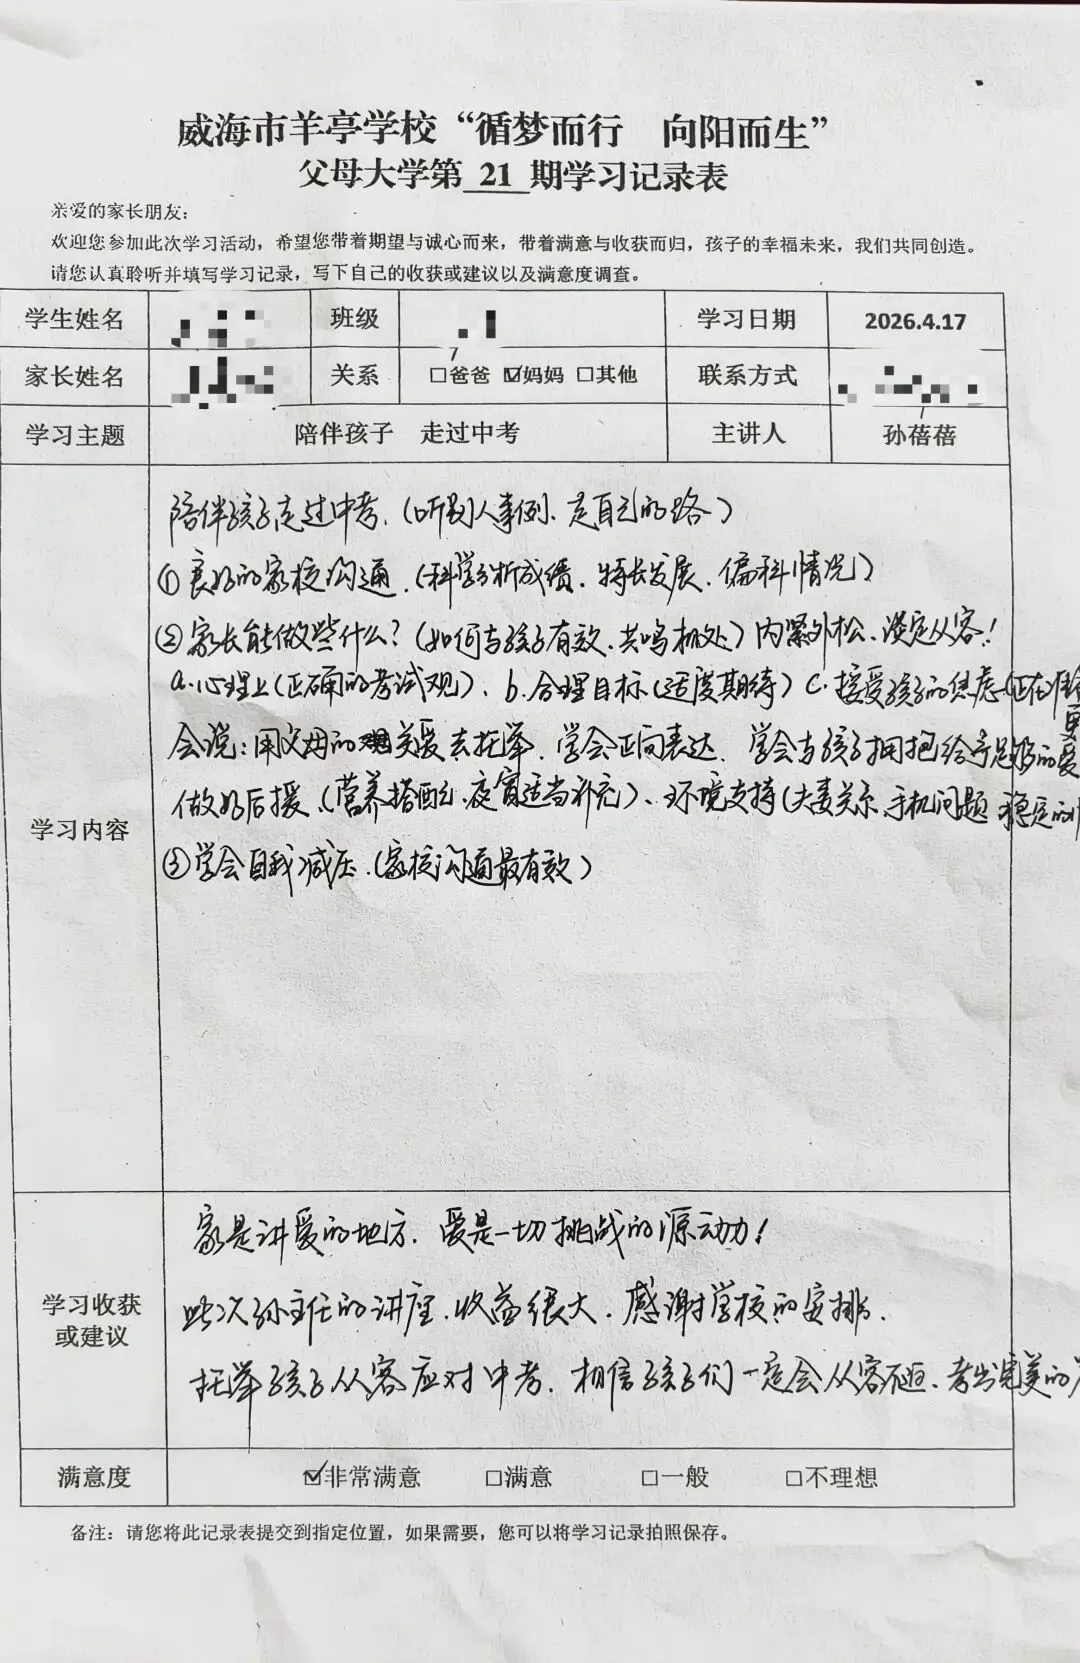 威海市羊亭学校“循梦而行 向阳而生”
父母大学第 21 期学习记录表
亲爱的家长朋友：
欢迎您参加此次学习活动，希望您带着期望与诚心而来，带着满意与收获而归，孩子的幸福未来，我们共同创造。
请您认真聆听并填写学习记录，写下自己的收获或建议以及满意度调查。
学生姓名 班级 学习日期 2026.4.17
家长姓名 关系 □爸爸 ☑妈妈 □其他 联系方式
学习主题 陪伴孩子 走过中考 主讲人 孙蓓蓓
学习内容
陪伴孩子走过中考.（听别人事例、走自己的路）
①良好的家校沟通.（科学分析成绩、特长发展、偏科情况）
②家长能做些什么？（如何与孩子有效、共鸣相处）内紧外松、淡定从容！
a.心理上（正确的考试观）、b.合理目标（适度期待）c.接受孩子的焦虑（正在
会说：用父母的关爱去托举、学会正向表达、学会与孩子拥抱给予足够的爱
更
做好后援、（营养搭配、夜宵适当补充）、环境支持（夫妻关系、手机问题 稳定的
③学会自我减压.（家校沟通最有效）
学习收获
或建议
家是讲爱的地方、爱是一切挑战的源动力！
此次孙主任的讲座、收益很大、感谢学校的安排.
托举孩子从容应对中考、相信孩子们一定会从容不迫、考出完美的
满意度 ☑非常满意 □满意 □一般 □不理想
备注：请您将此记录表提交到指定位置，如果需要，您可以将学习记录拍照保存。